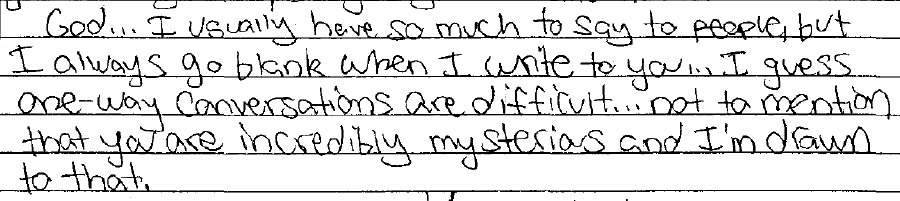 God... I usually have so much to say to people, but
I always go blank when I write to you... I guess
one-way conversations are difficult... not to mention
that you are incredibly mysterias and I'm drawn
to that.